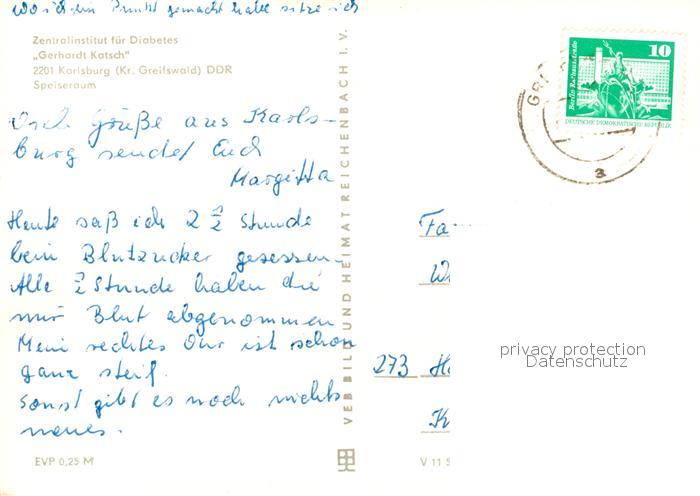 Wo ich den Punkt gemacht habe sitze ich
Zentralinstitut für Diabetes
„Gerhardt Katsch"
2201 Karlsburg (Kr. Greifswald) DDR
Speiseraum
Viele Grüße aus Karls-
burg sendet Euch
Margitta
Heute saß ich 2 1/2 Stunde
beim Blutzucker gesessen.
Alle 1/2 Stunde haben die
mir Blut abgenommen
Mein rechtes Ohr ist schon
ganz steif.
Sonst gibt es noch nichts
neues.
EVP 0,25 M
VEB BILD UND HEIMAT REICHENBACH I. V.
10
Berlin, Rathausstraße
DEUTSCHE DEMOKRATISCHE REPUBLIK
a
Fa
W
273 Ha
K
V 11 5
privacy protection
Datenschutz